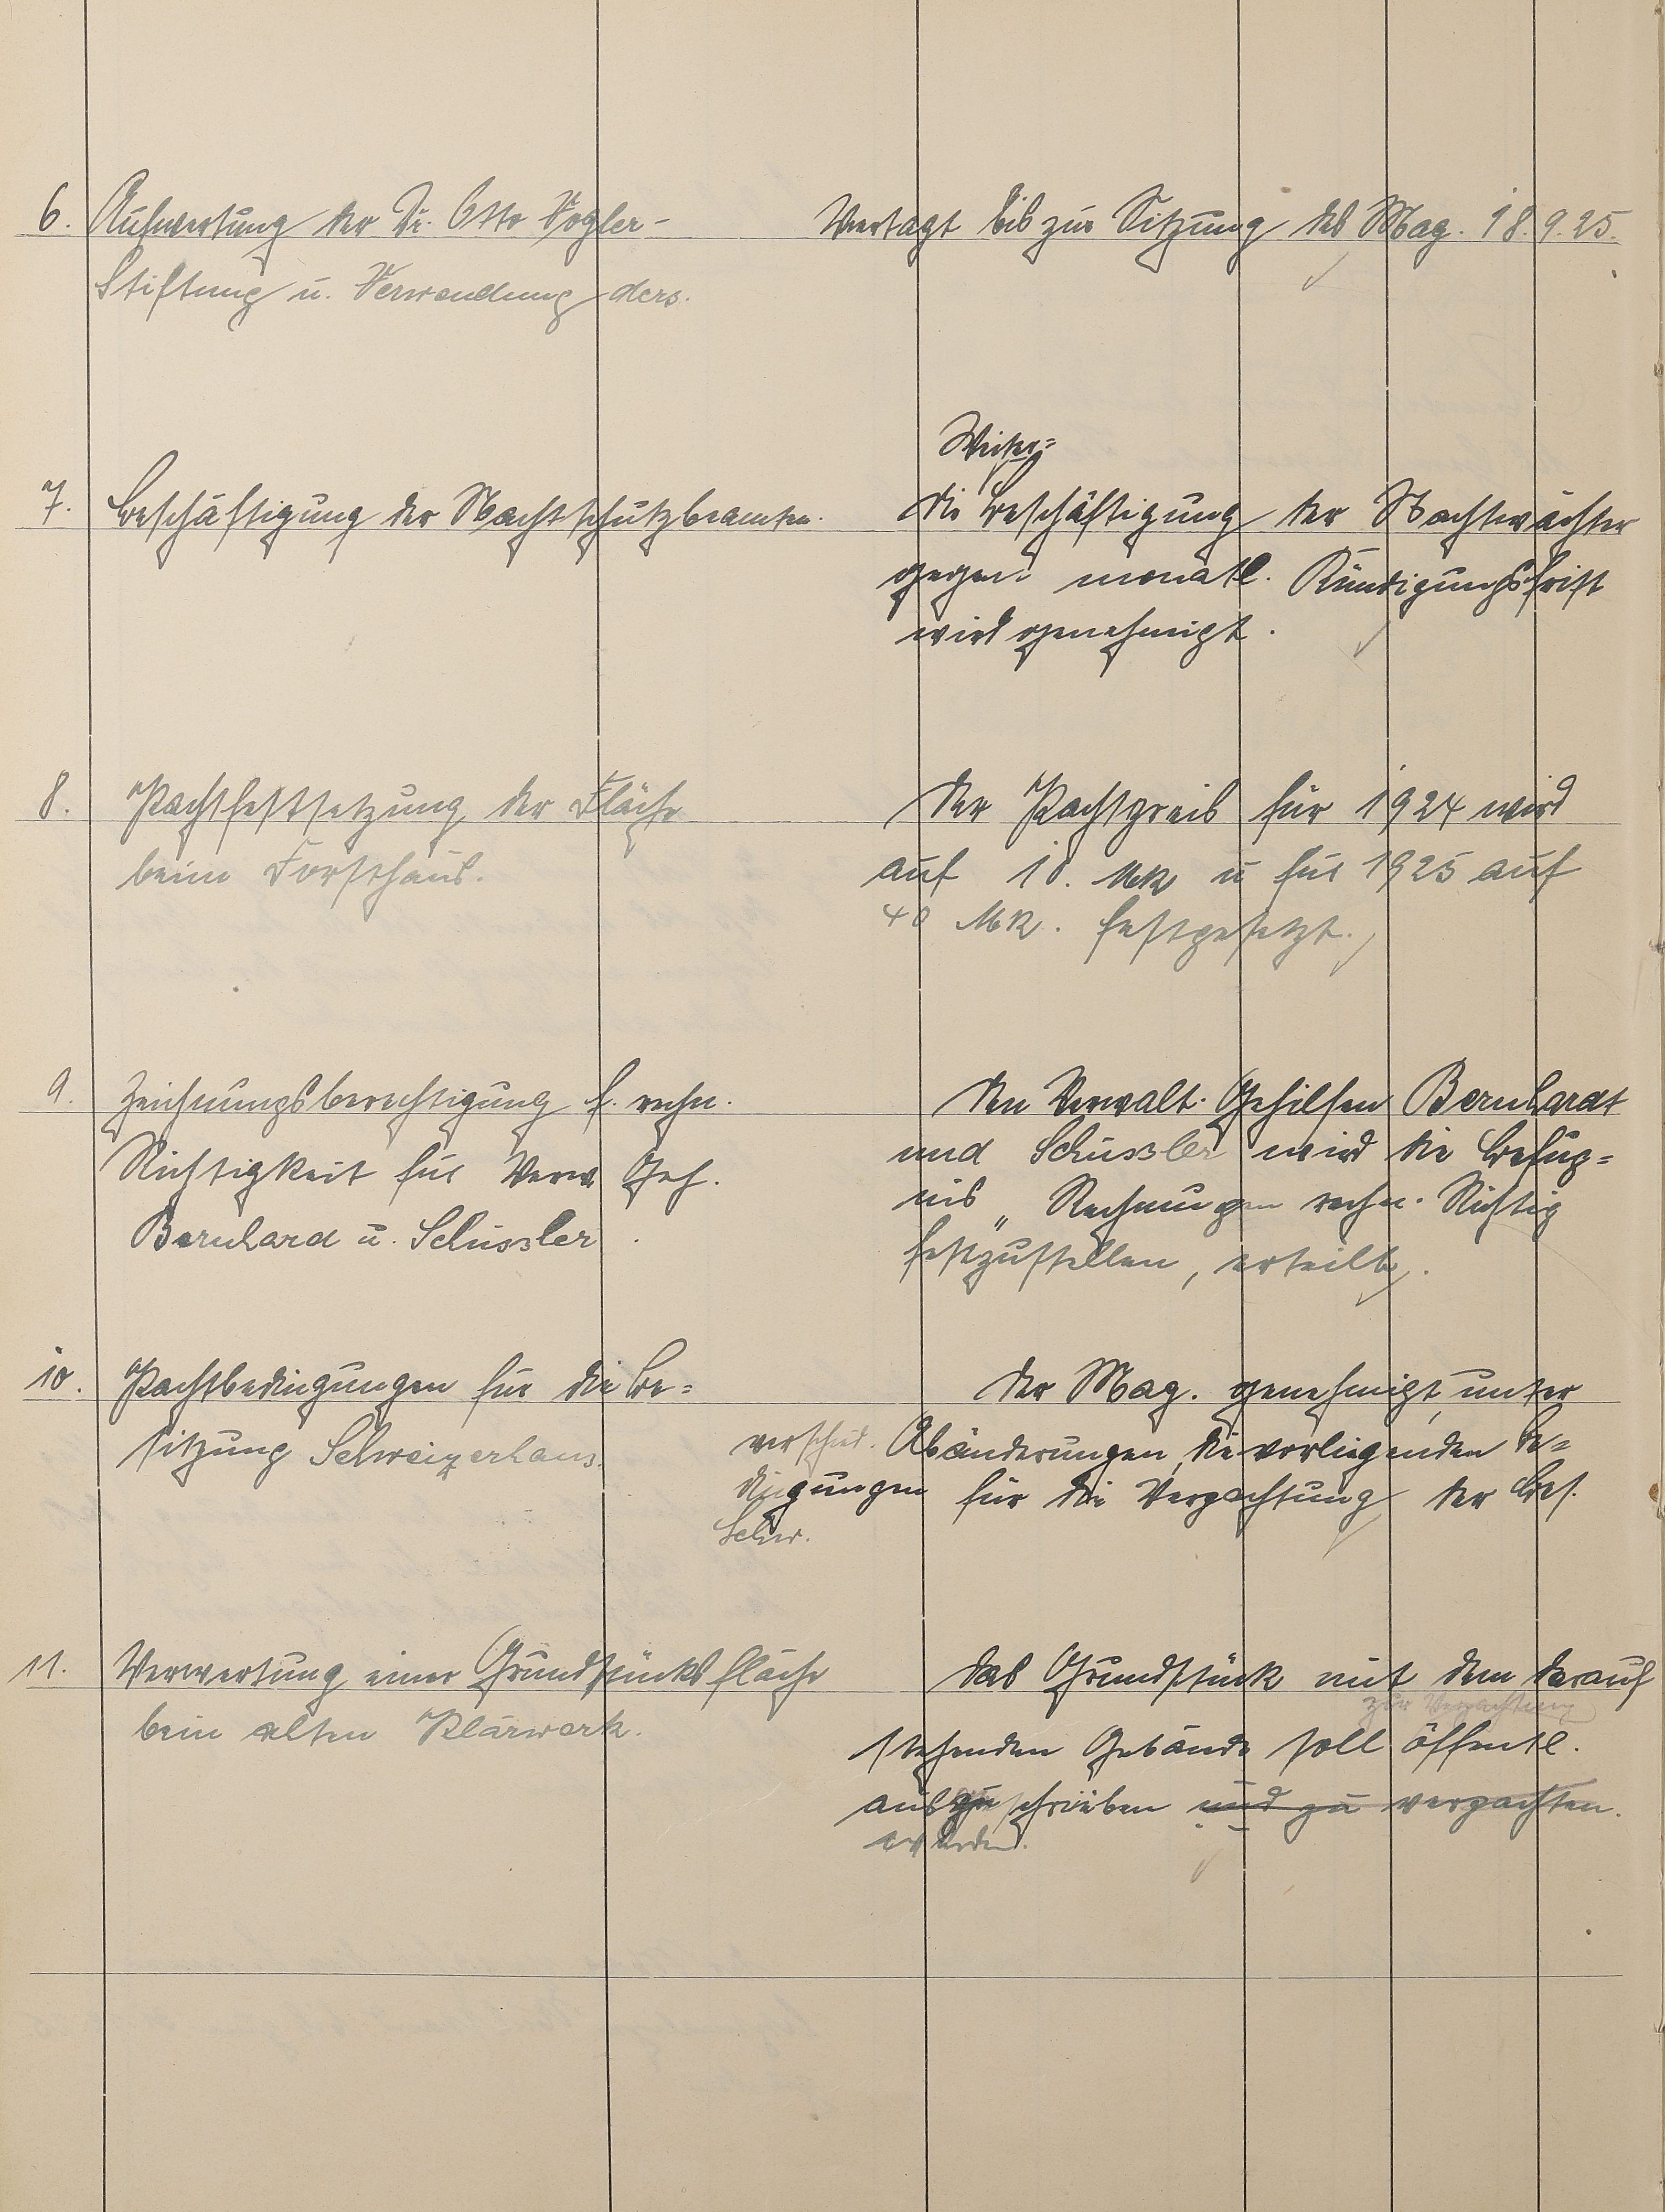 6. Aufwertung der Dr. Otto Vogler-
Stiftung u. Verwendung ders.
Vertagt bis zur Sitzung des Mag. 18.9.25.
7. Beschäftigung der Nachtschutzbeamten.
Weiter=
Die Beschäftigung der Nachtwächter
gegen monatl. Kündigungsfrist
wird genehmigt.
8. Pachtfestsetzung der Fläche
beim Forsthaus.
Der Pachtpreis für 1924 wird
auf 10. Mk u für 1925 auf
40 Mk. festgesetzt.
9. Zeichnungsberechtigung f. rechn.
Richtigkeit für Verw. Geh.
Bernhard u. Schüssler.
Den Verwalt. Gehilfen Bernhardt
und Schüssler wird die Befug=
nis „ Rechnungen rechn. Richtig
festzustellen, erteilt.
10. Pachtbedingungen für die Be=
sitzung Schweizerhaus.
Der Mag. genehmigt, unter
verschied. Abänderungen, die vorliegenden Be=
dingungen für die Verpachtung der Bes.
Schw.
11. Verwertung einer Grundstücksfläche
beim alten Klärwerk.
Das Grundstück mit dem darauf
zur Verpachtung
stehenden Gebäude soll öffentl.
ausgeschrieben und zu verpachten.
werden.